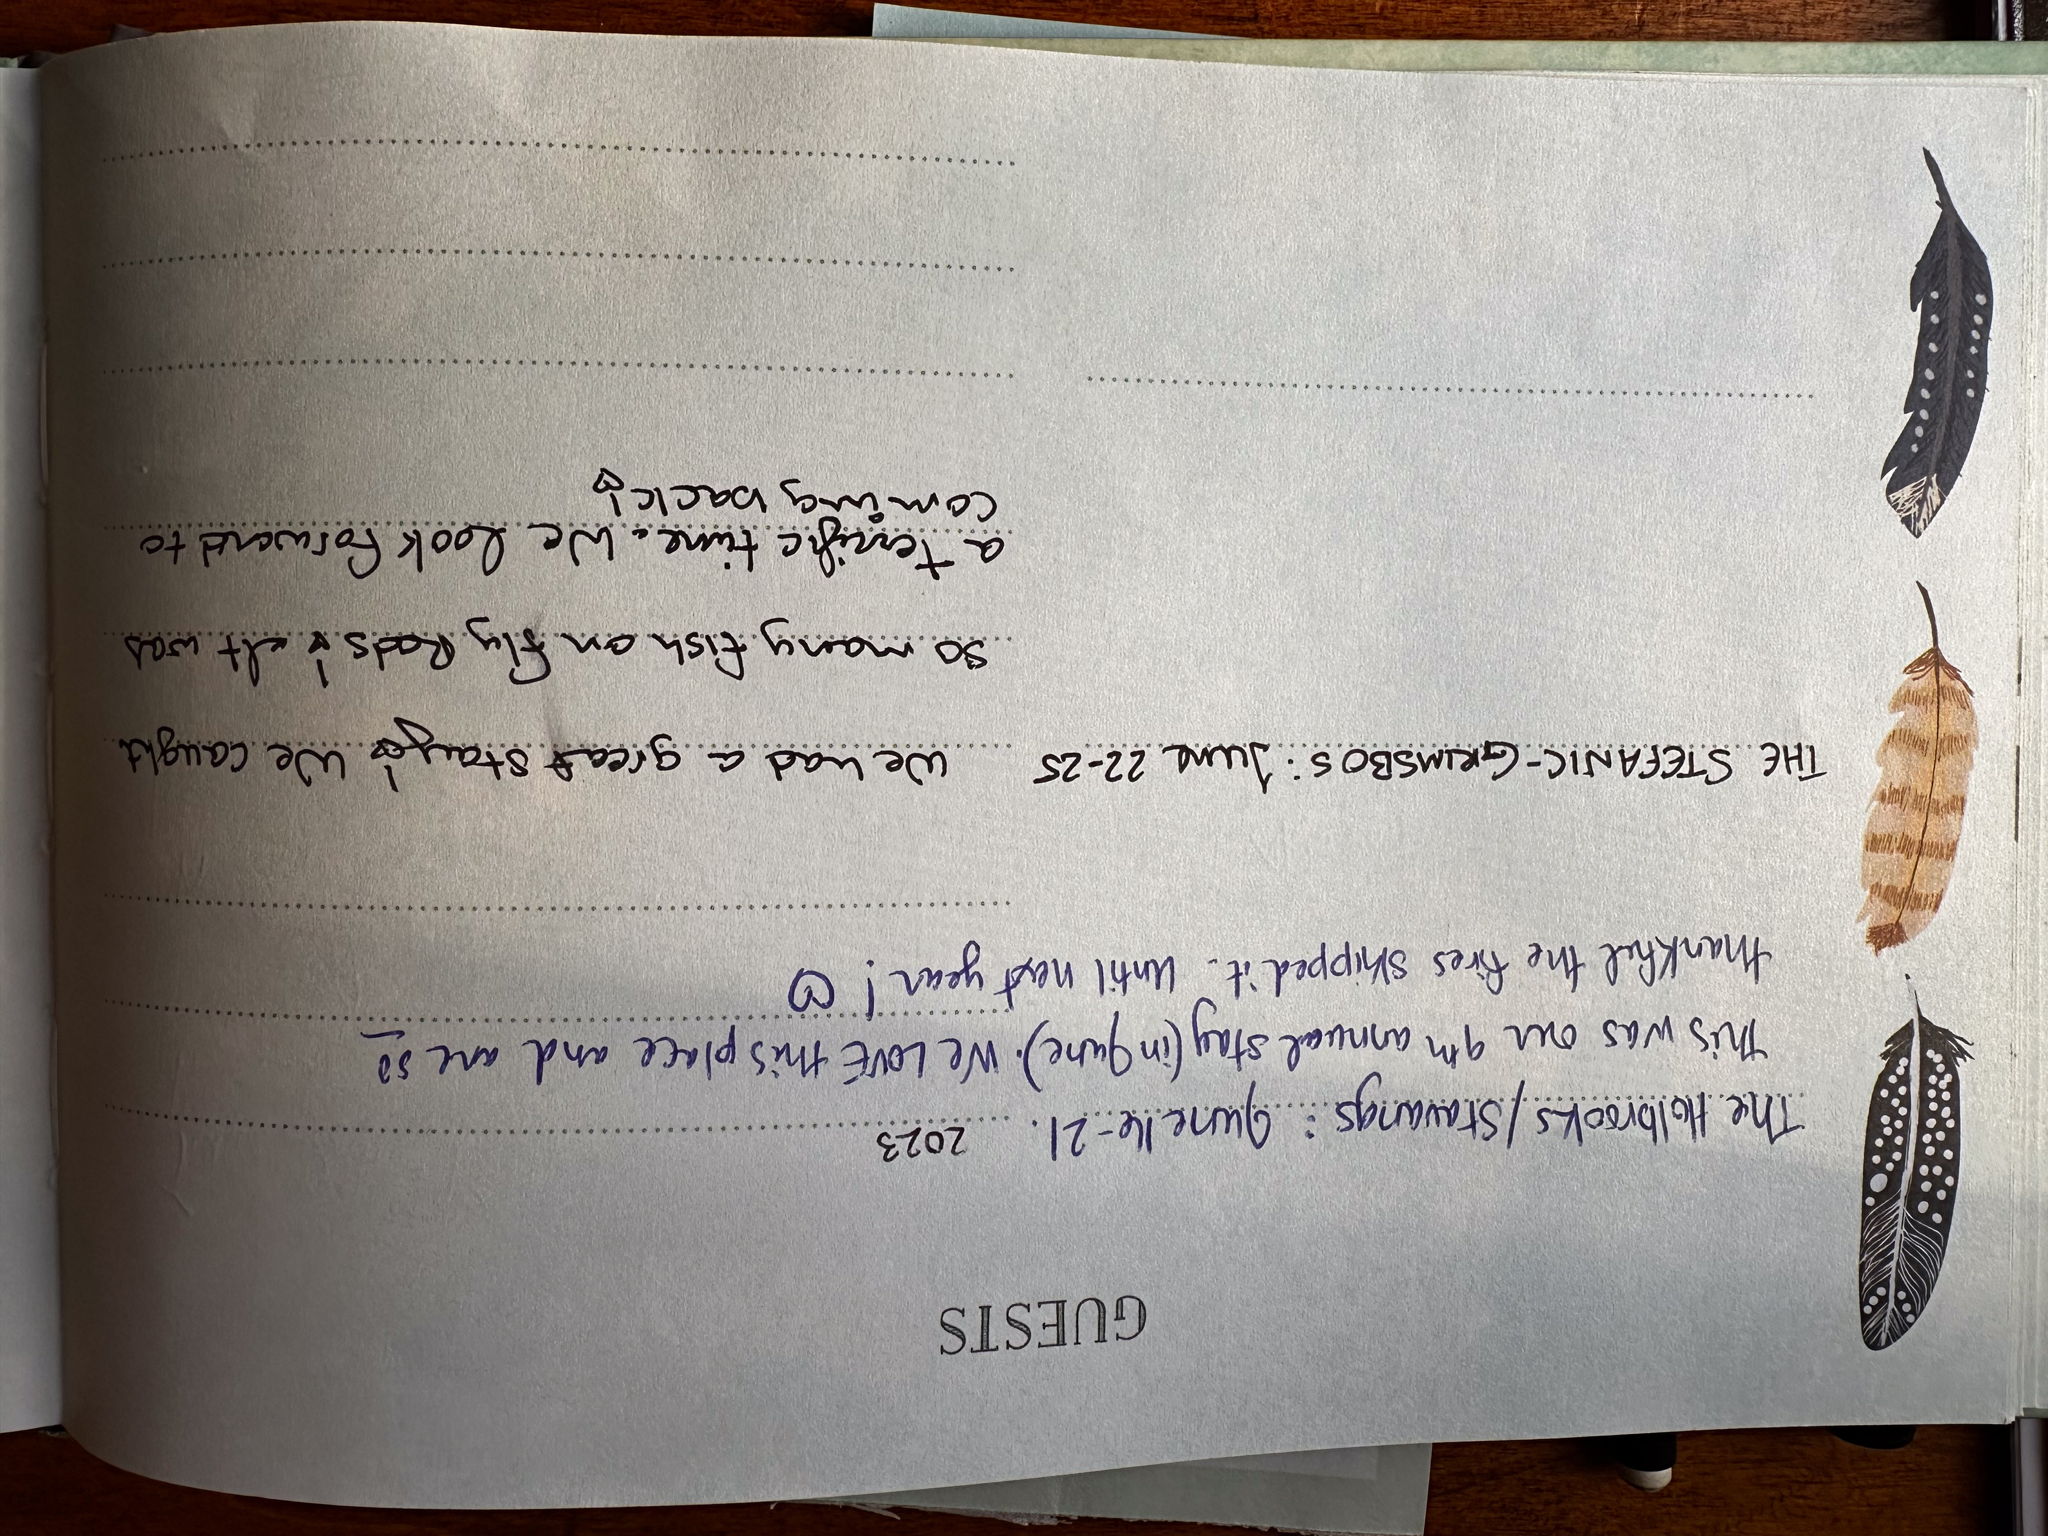 GUESTS
The Holbrooks/Stavangs: June 16-21. 2023
This was our 9th annual stay (in June). We LOVE this place and are so
thankful the fires skipped it. Until next year! ♡
THE STEFANIC-GRIMSBOS: June 22-25 We had a great stay! We caught
so many fish on fly Rods! It was
a terrific time. We look forward to
coming back!